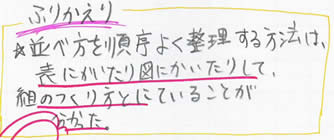 ふりかえり
☆並べ方を順序よく整理する方法は、
表にかいたり図にかいたりして、
組のつくり方とにていることが
分かった。